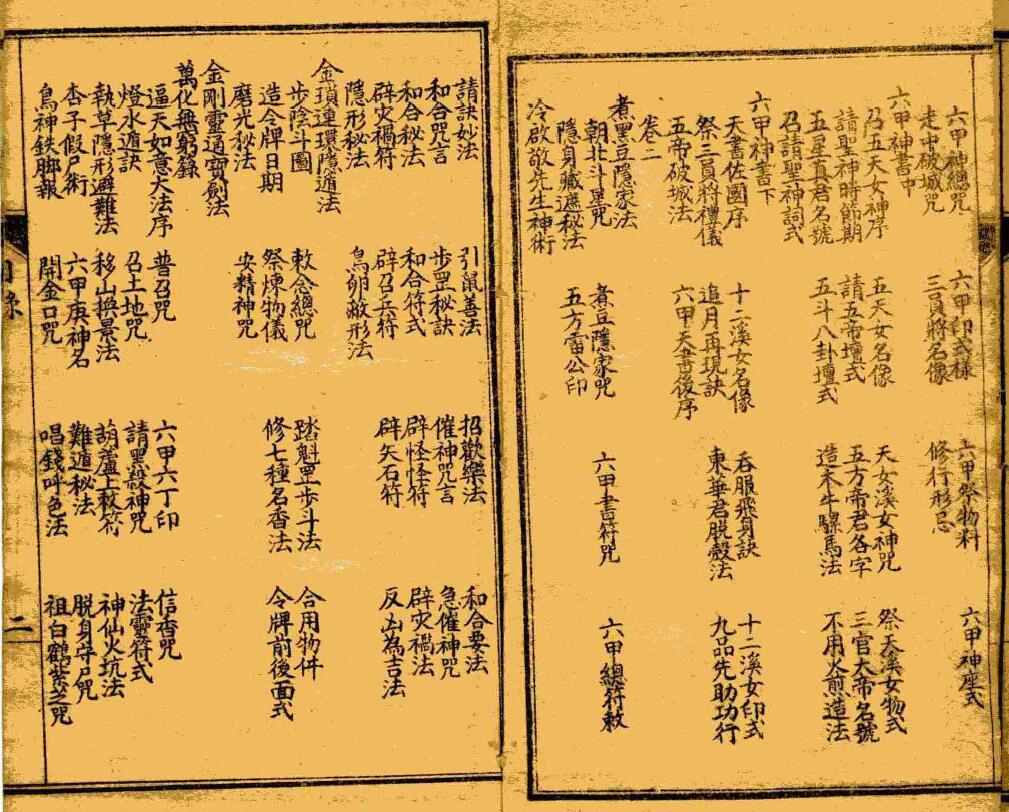 六甲神總咒 六甲印式樣 六甲祭物料 六甲神座式
走中破城咒 三員將名像 修行形忌
六甲神書中
召五天女神序 五天女名像 天女溪女神咒 祭天溪女物式
請聖神時節期 請五帝壇式 五方帝君各字 三官大帝名號
五星真君名號 五斗八卦壇式 造木牛騾馬法 不用火煎造法
召請聖神詞式
六甲神書下
天書佐國序 十二溪女名像 吞服飛身訣 十二溪女印式
祭三員將禮儀 追月再現訣 東華君脫殼法 九品先助功行
五帝破城法 六甲天書後序
卷二
煮黑豆隱家法
朝北斗星咒 煮豆隱家咒 六甲書符咒 六甲總符敕
隱身藏遮秘法 五方雷公印
冷啟敬先生神術
請訣妙法 引鼠善法 招歡樂法 和合要法
和合咒言 步罡秘訣 催神咒言 急催神咒
和合秘法 和合符式 辟怪怪符 辟灾禍法
辟灾禍符 辟召兵符 辟矢石符 反凶為吉法
隱形秘法 鳥卵敵形法
金瑣連環隱遁法
步陰斗圖 敕念總咒 踏魁罡步斗法 合用物件
造令牌日期 祭煉物儀 修七種名香法 令牌前後面式
磨光秘法 安精神咒
金剛靈通寶劍法
萬化無窮錄
逼天如意大法序 普召咒 六甲六丁印 信香咒
燈水遁訣 召土地咒 請黑殺神咒 法靈符式
執草隱形避難法 移山換景法 葫蘆上敕符 神仙火坑法
杏子假尸術 六甲庚神名 難遁秘法 脫身守尸咒
鳥神鉄脚報 開金口咒 唱錢呼色法 祖白鶴紫芝咒
目錄 二